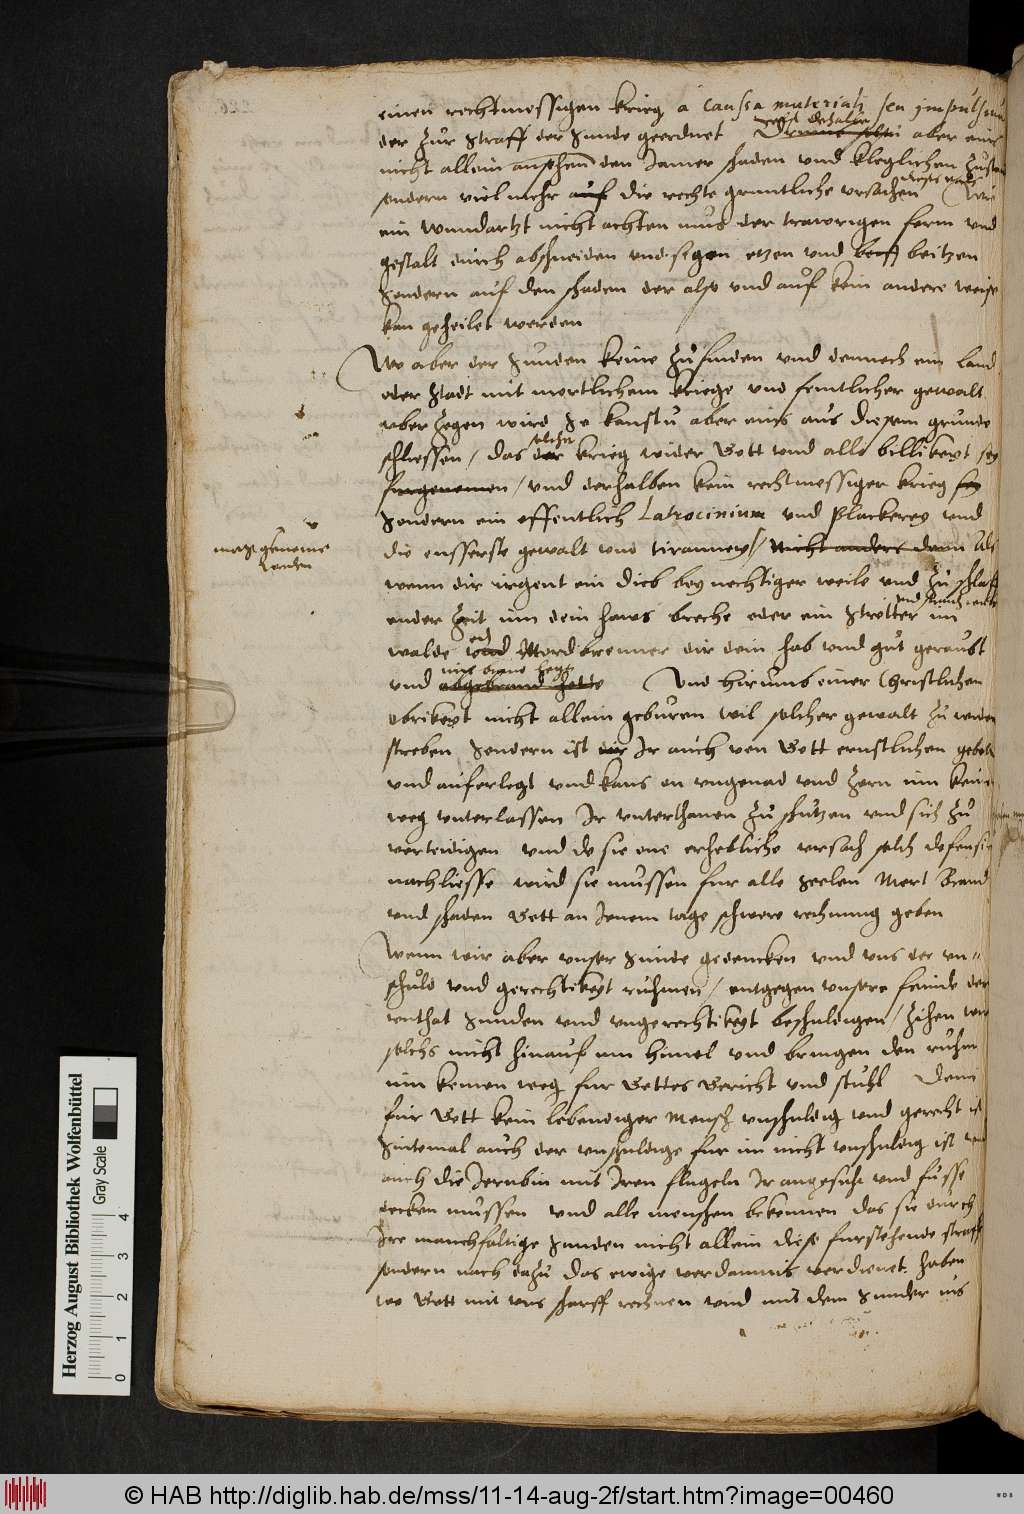 einen rechtmessigen krieg a causa materiali seu impulsiua
der zur straff der sunde geordnet aber eins
nicht allein ansehen den Jamer schaden und kleglichen
sondern viel mehr auf die rechte gruntliche ursachen
ein wundartzt nicht achten mus der trawrigen form und
gestalt durch abschneiden und segen etzen und beitzen
Sondern auf den schaden der also und auf kein andere weise
kan geheilet werden
Wo aber der Sunden keine zu finden und dennoch ein Land
oder Stadt mit mortlichem kriege und feintlicher gewalt
uberzogen wird So kanstu aber eins aus diesem grunde
schliessen / das der solcher krieg wider Gott und alle billikeyt sey
furgenomen / und derhalben kein rechtmessiger krieg sey
Sondern ein offentlich Latrocinium und Plackerey und
die eusserste gewalt und tiranney / nicht anders denn Als
wenn dir irgent ein dieb bey nechtiger weile und zu schlaf
ender zeit in dein haws breche oder ein Strotter im
walde und Mordbrenner dir dein hab und gut geraubt
und abgebrand hette Und hirumb einer Christlichen
Obrikeyt nicht allein geburen wil solcher gewalt zu widder
streben Sondern ist Ir auch von Gott ernstlichen gebot
und auferlegt und kans on ungenad und zorn in keinen
weg unterlassen Ir unterthanen zu schutzen und sich zu
verteidigen und do sie one erhebliche ursach solch defension
nachliesse wird sie mussen fur alle Seelen Mort Brand
und schaden Gott an Jenem tage schwere rechnung geben
Wenn wir aber unser Sunde gedencken und uns der un=
schuld und gerechtikeyt ruhmen / entgegen unsere feinde der
unthat Sunden und ungerechtikeyt beschuldigen / zihen wir
solchs nicht hinauf in himel und bringen den ruhm
in keinen weg fur Gottes Gericht und stuhl Denn
fur Gott kein lebendiger Mensch unschuldig und gerecht ist
Sintemal auch der unschuldige fur im nicht unschuldig ist und
auch die mit Iren flugeln Ir angesicht und fusse
decken mussen und alle menschen bekennen das sie durch
Ire manchfaltige Sunden nicht allein diese furstehende straff
sondern noch dazu das ewige verdamnis verdienet haben
wo Gott mit uns scharff rechnen und mit dem Sunder ins
Herzog August Bibliothek Wolfenbüttel
Gray Scale
0 1 2 3 4
© HAB http://diglib.hab.de/mss/11-14-aug-2f/start.htm?image=00460